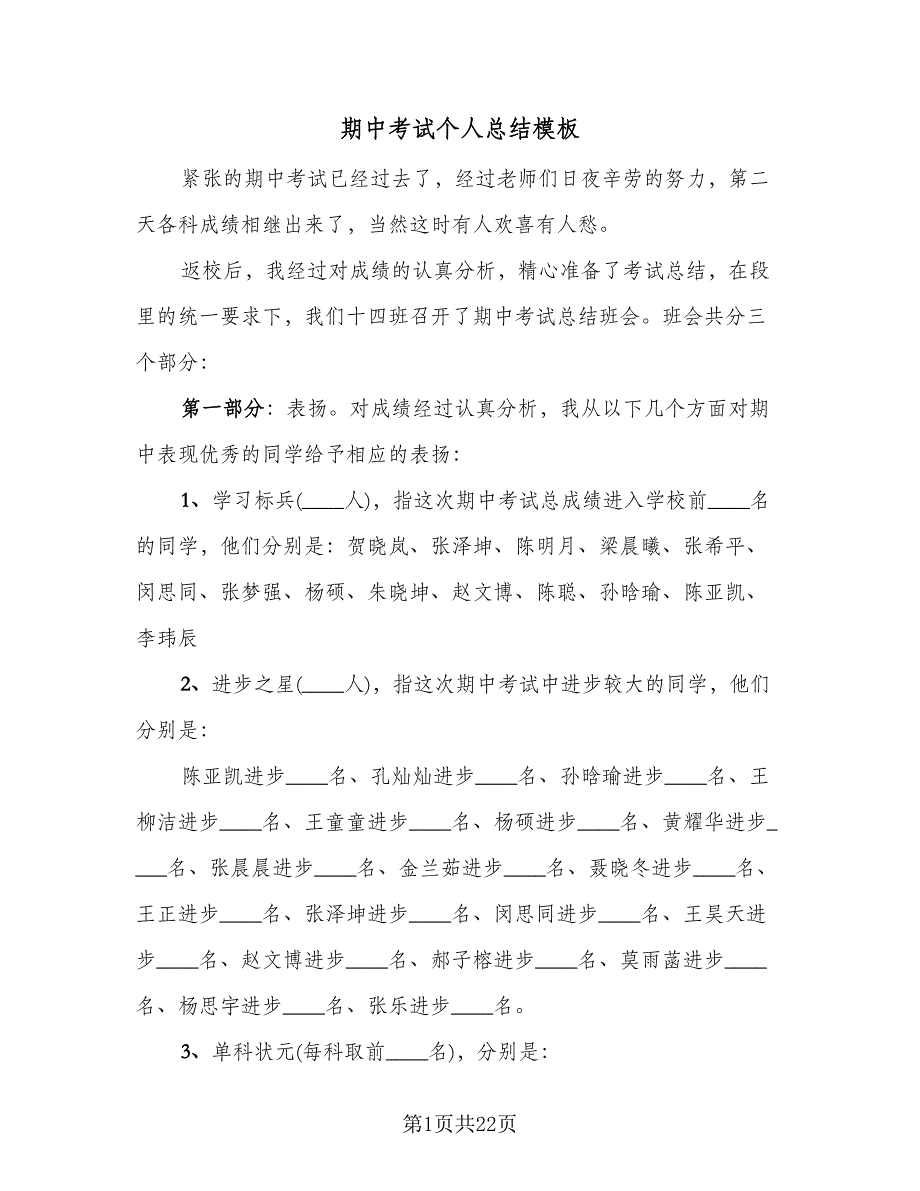 期中考试个人总结模板
紧张的期中考试已经过去了，经过老师们日夜辛劳的努力，第二
天各科成绩相继出来了，当然这时有人欢喜有人愁。
返校后，我经过对成绩的认真分析，精心准备了考试总结，在段
里的统一要求下，我们十四班召开了期中考试总结班会。班会共分三
个部分：
第一部分：表扬。对成绩经过认真分析，我从以下几个方面对期
中表现优秀的同学给予相应的表扬：
1、学习标兵(____人)，指这次期中考试总成绩进入学校前____名
的同学，他们分别是：贺晓岚、张泽坤、陈明月、梁晨曦、张希平、
闵思同、张梦强、杨硕、朱晓坤、赵文博、陈聪、孙晗瑜、陈亚凯、
李玮辰
2、进步之星(____人)，指这次期中考试中进步较大的同学，他们
分别是：
陈亚凯进步____名、孔灿灿进步____名、孙晗瑜进步____名、王
柳洁进步____名、王童童进步____名、杨硕进步____名、黄耀华进步_
___名、张晨晨进步____名、金兰茹进步____名、聂晓冬进步____名、
王正进步____名、张泽坤进步____名、闵思同进步____名、王昊天进
步____名、赵文博进步____名、郝子榕进步____名、莫雨菡进步____
名、杨思宇进步____名、张乐进步____名。
3、单科状元(每科取前____名)，分别是：
第1页共22页